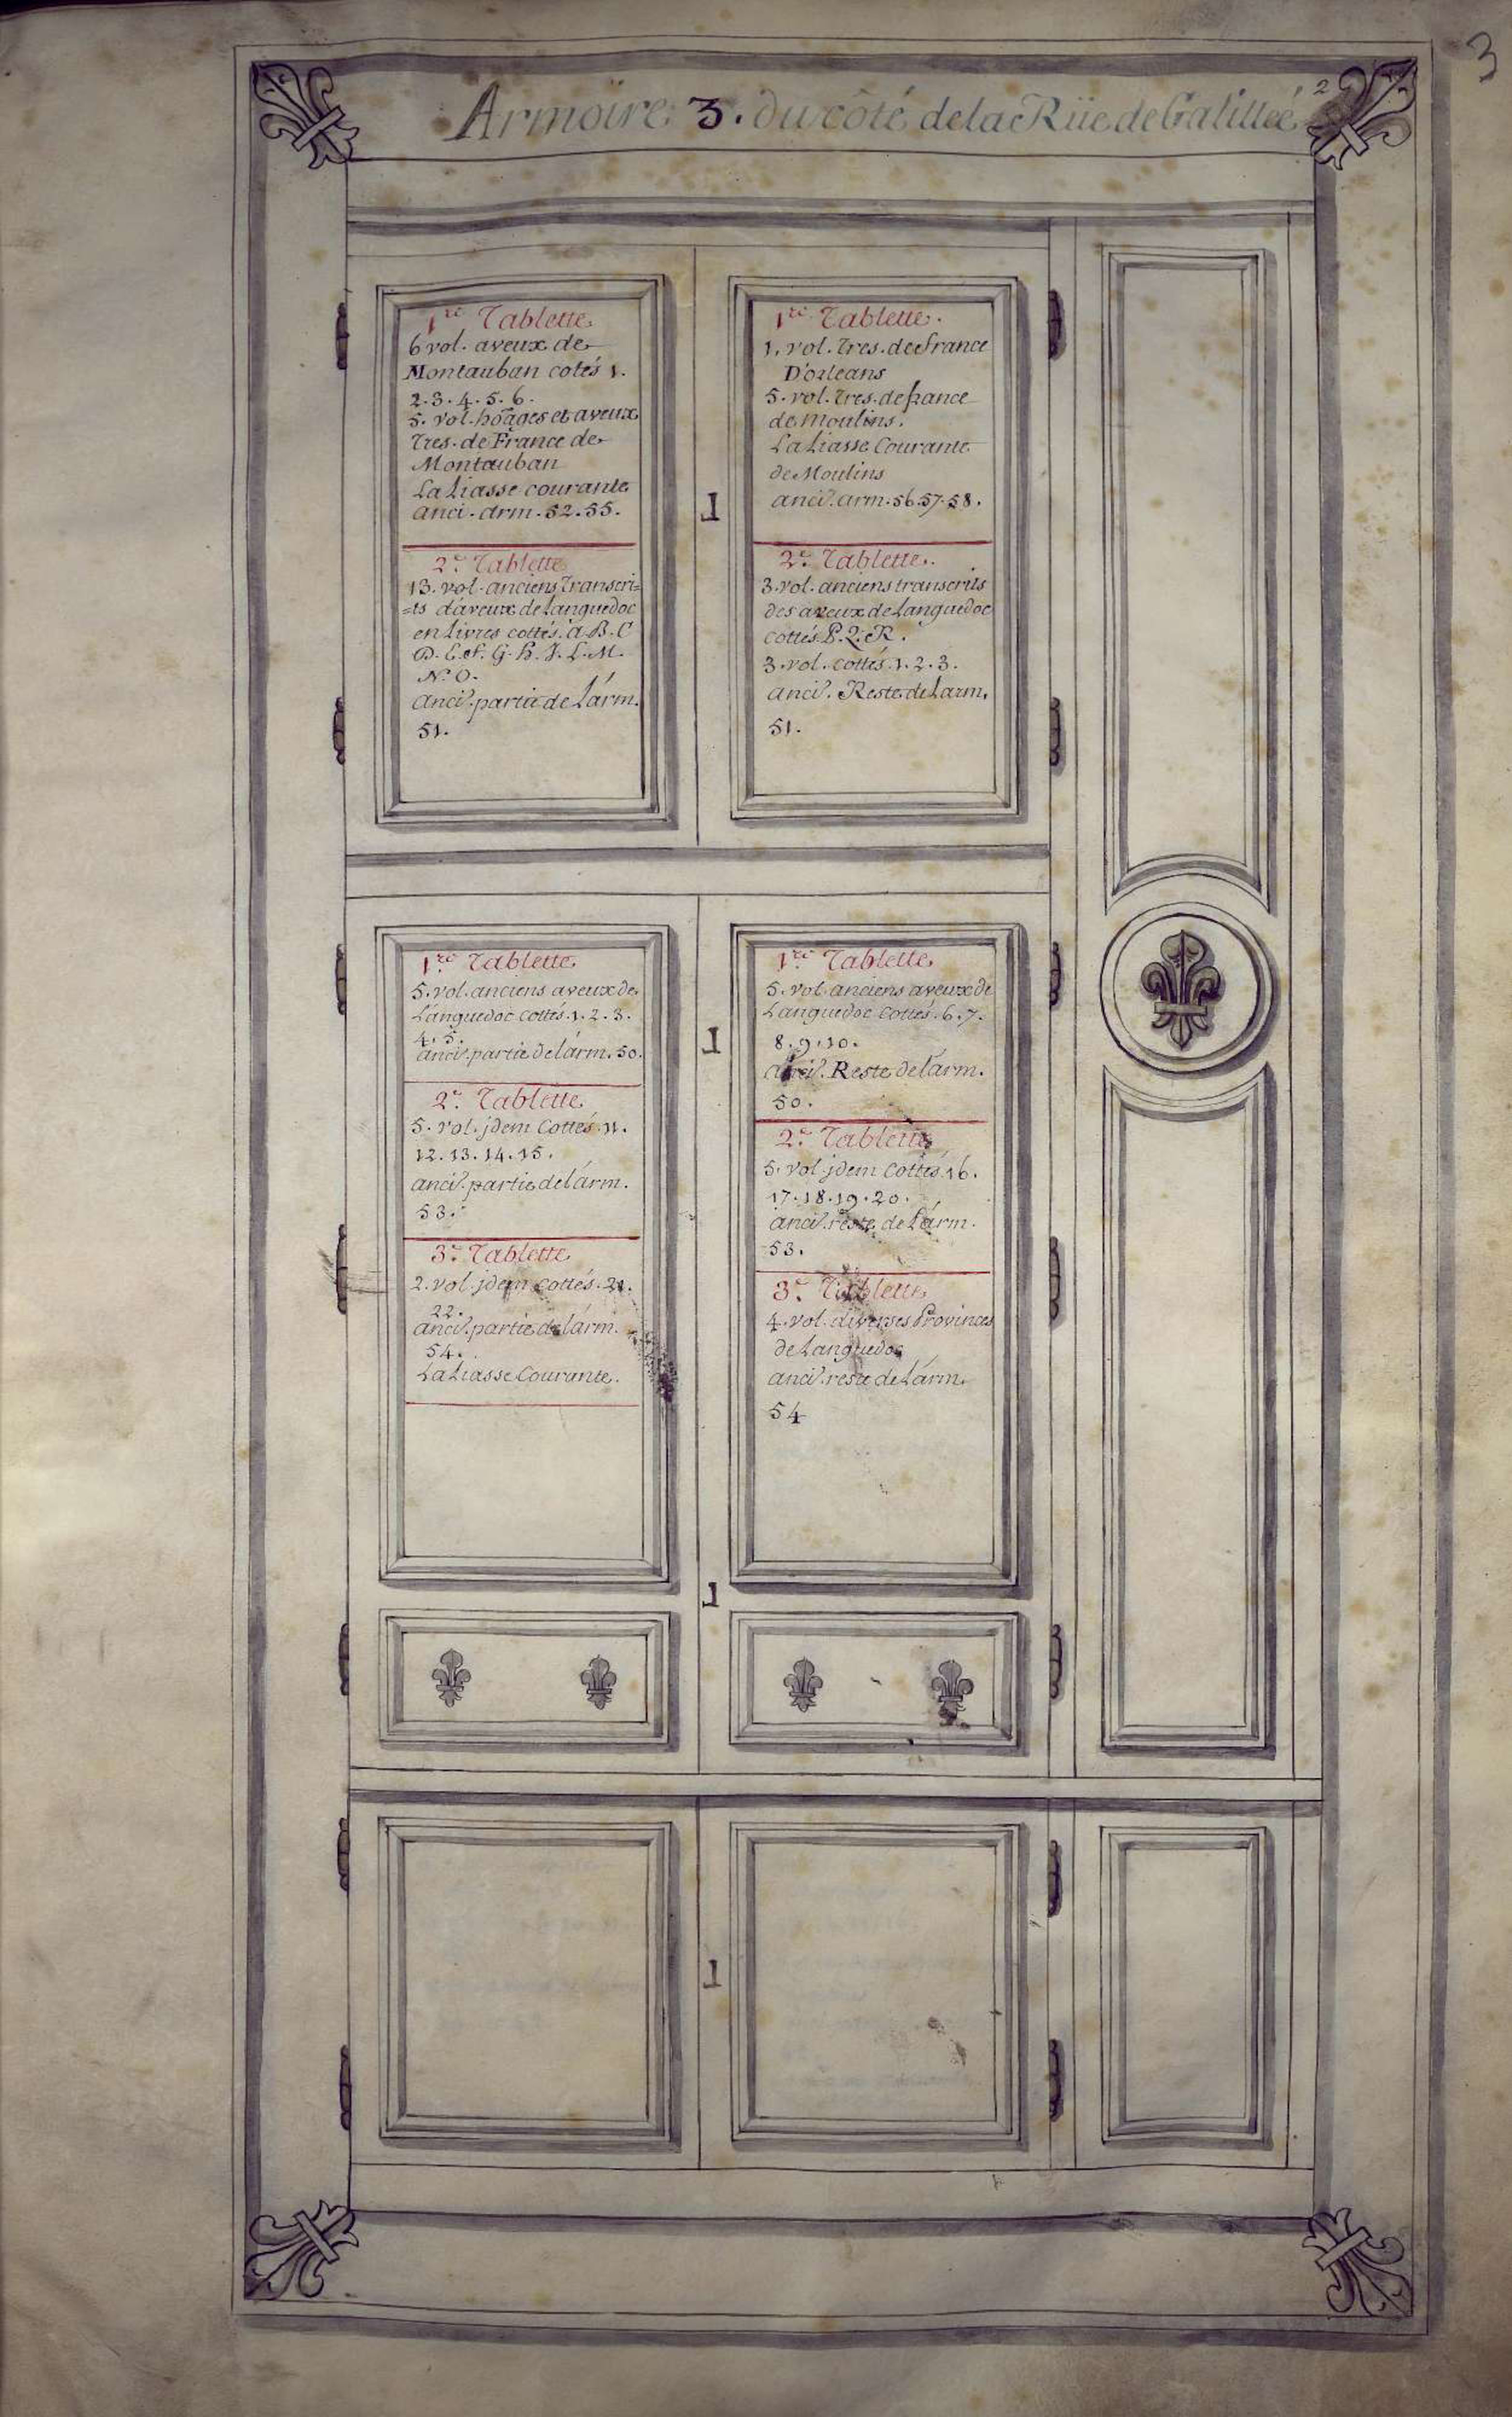 3
2
Armoire 3. du côté de la Rüe de Galilleé
1re Tablette
6 vol. aveux de
Montauban cotés 1.
2. 3. 4. 5. 6.
5. vol. hoages et aveux
Tres. de France de
Montauban
La Liasse courante
anci. arm. 52. 55.
2e Tablette
13. vol. anciens Transcri=
=ts d'aveux de Languedoc
en Livres cottés. A. B. C
D. E. F. G. H. J. L. M.
N. O.
anct. partie de L'arm.
51.
1re Tablette.
1. vol. Tres. de france
D'orleans
5. vol. Tres. de france
de Moulins.
La Liasse Courante
de Moulins
anct. arm. 56. 57. 58.
2e Tablette.
3. vol. anciens transcrits
des aveux de Languedoc
cottés P. Q. R.
3. vol. cottés. 1. 2. 3.
anct. Reste de L'arm.
51.
1
1re Tablette
5. vol. anciens aveux de
Languedoc cottés. 1. 2. 3.
4. 5.
anct. partie de l'arm. 50.
2e Tablette
5. vol. jdem Cottés. 11.
12. 13. 14. 15.
anct. partie de l'arm.
53.
3e Tablette
2. vol. jdem cottés. 21.
22.
anct. partie de l'arm.
54.
La Liasse Courante.
1re Tablette
5. vol. anciens aveux de
Languedoc Cottés. 6. 7.
8. 9. 10.
anct. Reste de l'arm.
50.
2e Tablette
5. vol. jdem Cottés. 16.
17. 18. 19. 20.
anct. reste de L'arm.
53.
3e Tablette
4. vol. diverses Provinces
de Languedoc
anct. reste de L'arm.
54
1
1
1